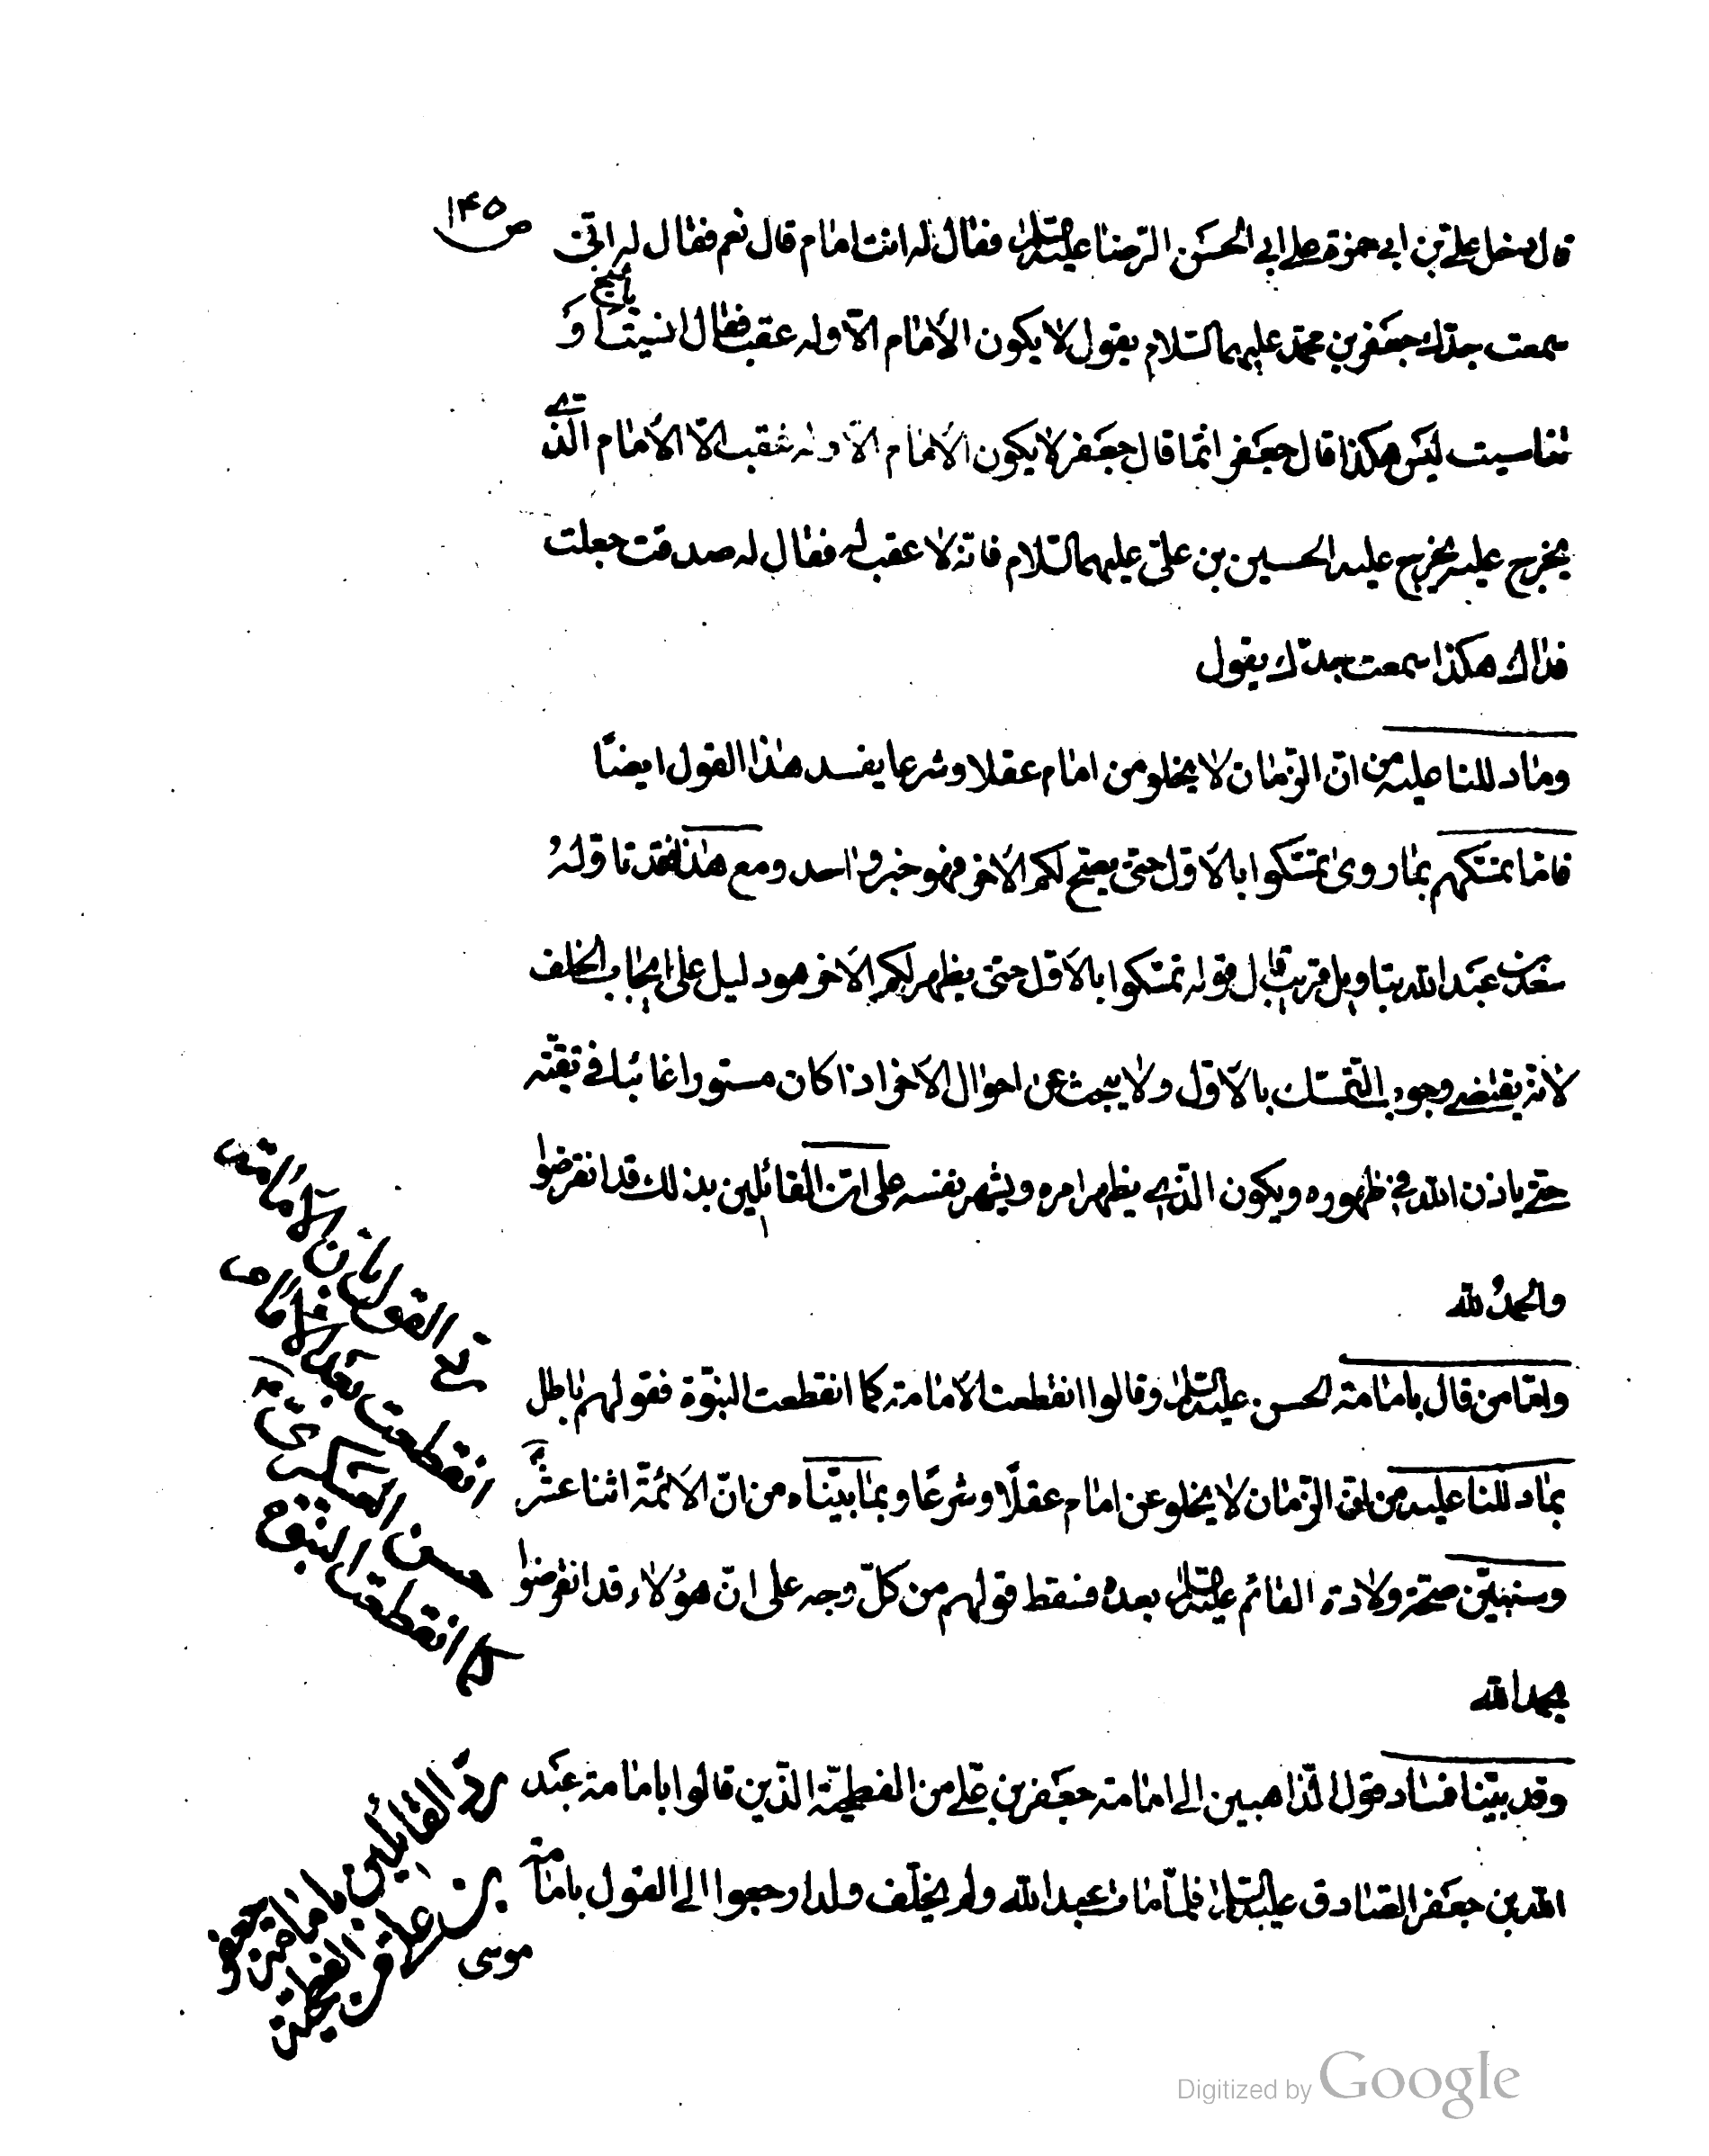 ص ١٤٥
قال دخل علي بن ابي حمزة على ابي الحسن الرضا عليه السلام فقال له انت امام قال نعم فقال له انّي
سمعت جدّك جعفر بن محمّد عليهما السلام يقول لا يكون الأمام الّا وله عقب فقال انسيت يا شيخ او
تناسيت ليس هكذا قال جعفر انّما قال جعفر لا يكون الأمام الّا وله عقب الّا الأمام الّذي
يخرج عليه الحسين بن علي عليهما السّلام فانّه لا عقب له فقال له صدقت جعلت
فداك هكذا سمعت جدّك يقول
وما دللنا عليه من انّ الزّمان لا يخلو من امام عقلا وشرعا يفسد هذا القول ايضًا
فامّا تمسّكهم بما روى تمسّكوا بالأوّل حتّى يصحّ لكم الآخر فهو خبر واحد ومع هذا فقد تاوّلهُ
سعد بن عبد الله بتاويل قريب قال قوله تمسّكوا بالأوّل حتّى يظهر لكم الآخر هو دليل على ايجاب الخلف
لأنّه يقتضي وجوب التّمسّك بالأوّل ولا يبحث عن احوال الآخر اذا كان مستورا غائبا في تقيّته
حتّى ياذن الله في ظهوره ويكون الّذي يظهر امره ويشهر نفسه على انّ القائلين بذلك قد انقرضوا
والحمدُ لله
وامّا من قال بامامة الحسن عليه السلام وقالوا انقطعت الأمامة كما انقطعت النبوّة فقولهم باطل
بما دللنا عليه من انّ الزّمان لا يخلو عن امام عقلًا وشرعًا وبما بيّنّاه من انّ الأئمّة اثنا عشر
وسنبيّن صحّة ولادة القائم عليه السلام بعده فسقط قولهم من كلّ وجه على انّ هؤلاء قد انقرضوا
بحمد الله
وقد بيّنا فساد قول الّذاهبين الى امامة جعفر بن علي من الفطحيّة الّذين قالوا بامامة عبد
الله بن جعفر الصّادق عليه السلام فلمّا مات عبد الله ولم يخلّف ولدا رجعوا الى القول بامامة
موسى
القول بان الأمامة
انقطعت بعد الأمام
حسن العسكري
كما انقطعت النبوة
ردّ القائلين بامامة جعفر
بن علي من الفطحيّة
Digitized by Google